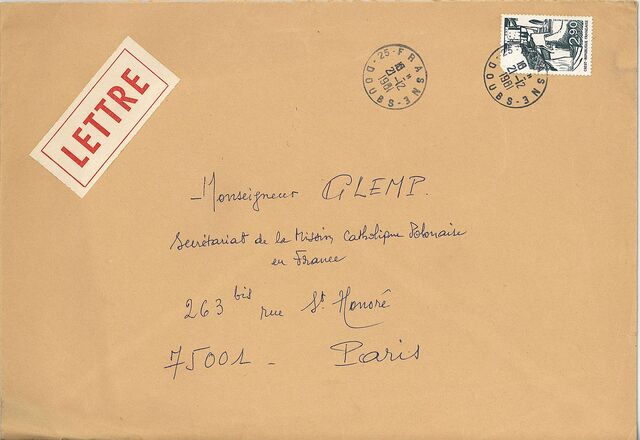 LETTRE
25-FRASNE
16 H
21-12
1981
DOUBS
25-FRASNE
16 H
21-12
1981
DOUBS
2,90
Monseigneur GLEMP.
Secrétariat de la Mission Catholique Polonaise
en France
263 bis rue St. Honoré
75001 - Paris